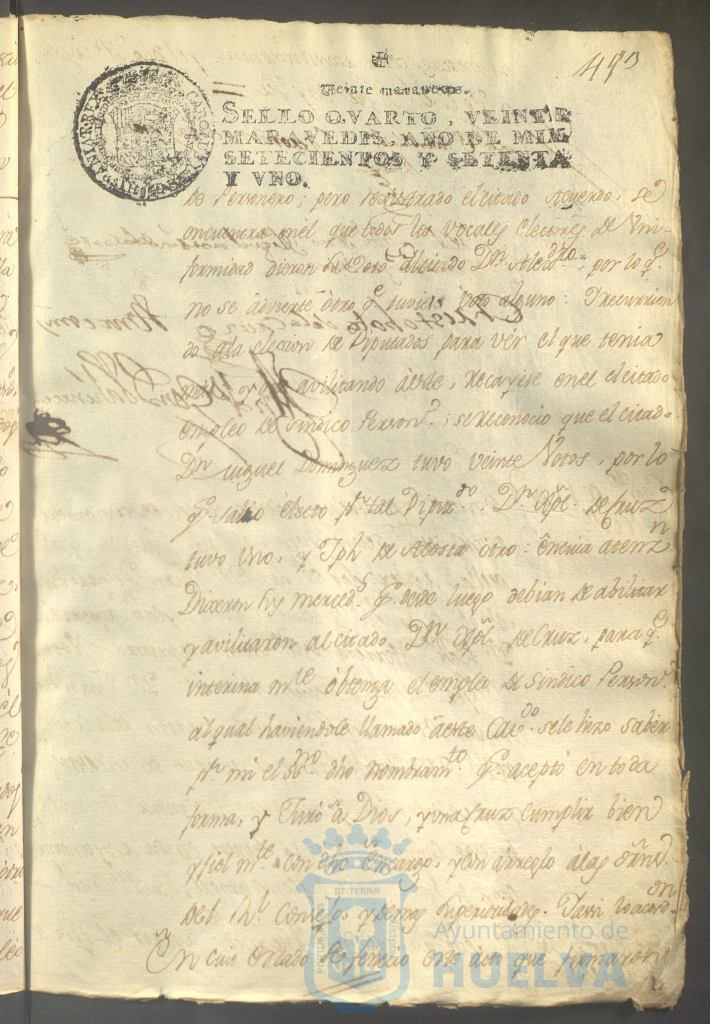 493
Veinte maravedis.
SELLO QVARTO, VEINTE
MARAVEDIS, AÑO DE MIL
SETECIENTOS Y SETENTA
Y VNO.
de Personero; pero registrado el citado Acuerdo, se
encuentra en el que todos los vocales electores de Uni-
formidad dieron su Voto al citado Dn., por lo q.e
no se advierte otro q.e tubiese voto alguno: Y recurrien
do a la eleccion de Diputados para vér el que tenia
avilitando áeste, recayese en el citado
empleo de Sindico Person.o; se reconocio que el citado
Dn. Miguel Dominguez tuvo veinte Votos, por lo
q.e salió electo p.r tal Diputado. Dn. Xpl. de Cruz
tuvo uno, y Jph de Acosta otro: En cuia atenz.n
Dixeron sus merced.s q.e desde luego debian de abilitar
y avilitaron al citado Dn. Xpl. de Cruz, para q.e
interina m.te obtenga el empleo de Sindico Person.o
al qual haviendole llamado á este Cav.do se le hizo saber
p.r mi el Ss.no dho nombram.to q.e aceptó en toda
forma, y Juró a Dios, y una Cruz cumplir bien
y fiel m.te con dho Encargo, y con arreglo á las orn.s
del R.l Consejo, y demas Superiores. Y assi lo acord.on
En cuio estado se fenecio este acto que firmaron
Christobal de la Cruz
PORTUS MARIS
ET TERRÆ
CUSTODIA
Ayuntamiento de
HUELVA